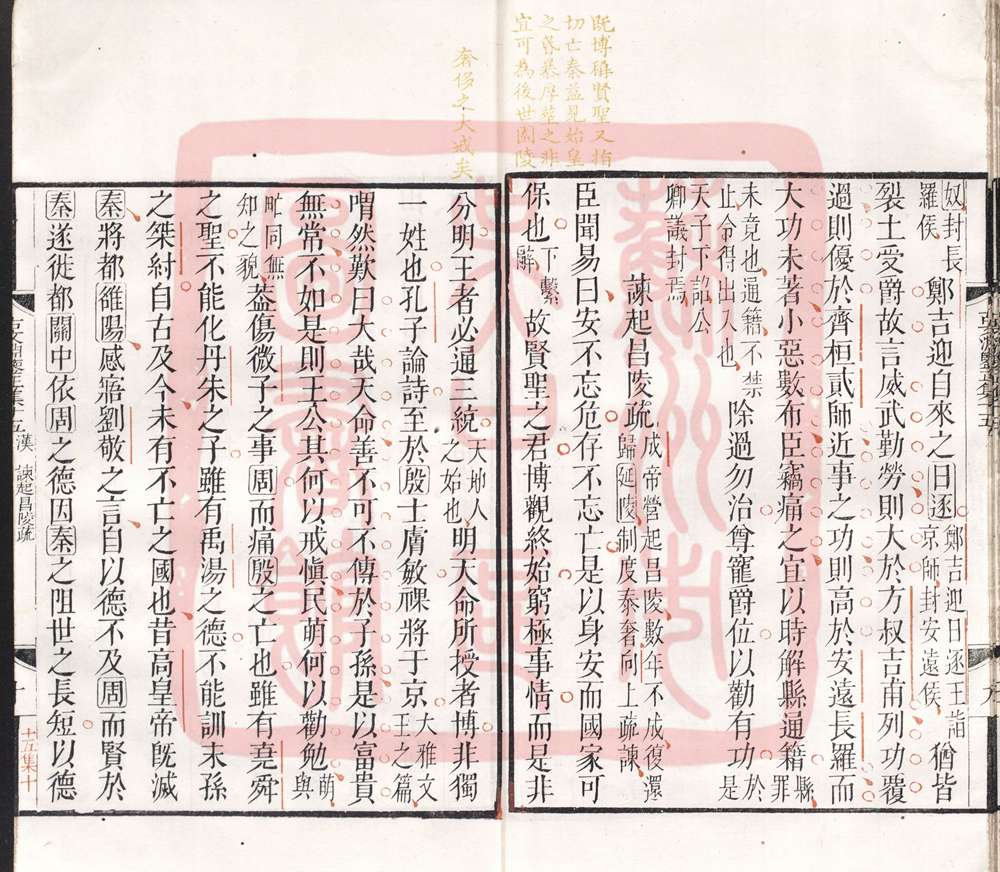 既博稱賢聖又指
切亡秦益見始皇
之暴厚葬之非
宜可為後世園陵
奢侈之大戒矣
奴封長羅侯鄭吉迎自來之日逐鄭吉迎日逐王詣京師封安遠侯猶皆
裂土受爵故言威武勤勞則大於方叔吉甫列功覆
過則優於齊桓貳師近事之功則高於安遠長羅而
大功未著小惡數布臣竊痛之宜以時解縣通籍縣罪
未竟也通籍不禁止令得出入也除過勿治尊寵爵位以勸有功於是
天子下詔公卿議封焉
諫起昌陵疏成帝營起昌陵數年不成復還歸延陵制度泰奢向上疏諫
臣聞易曰安不忘危存不忘亡是以身安而國家可
保也下繫辭故賢聖之君博觀終始窮極事情而是非
分明王者必通三統天地人之始也明天命所授者博非獨
一姓也孔子論詩至於殷士膚敏祼將于京大雅文王之篇
喟然歎曰大哉天命善不可不傳於子孫是以富貴
無常不如是則王公其何以戒慎民萌何以勸勉萌與
甿同無知之貌蓋傷微子之事周而痛殷之亡也雖有堯舜
之聖不能化丹朱之子雖有禹湯之德不能訓末孫
之桀紂自古及今未有不亡之國也昔高皇帝旣滅
秦將都雒陽感寤劉敬之言自以德不及周而賢於
秦遂徙都關中依周之德因秦之阻世之長短以德
漢 諫起昌陵疏
十
十五集十